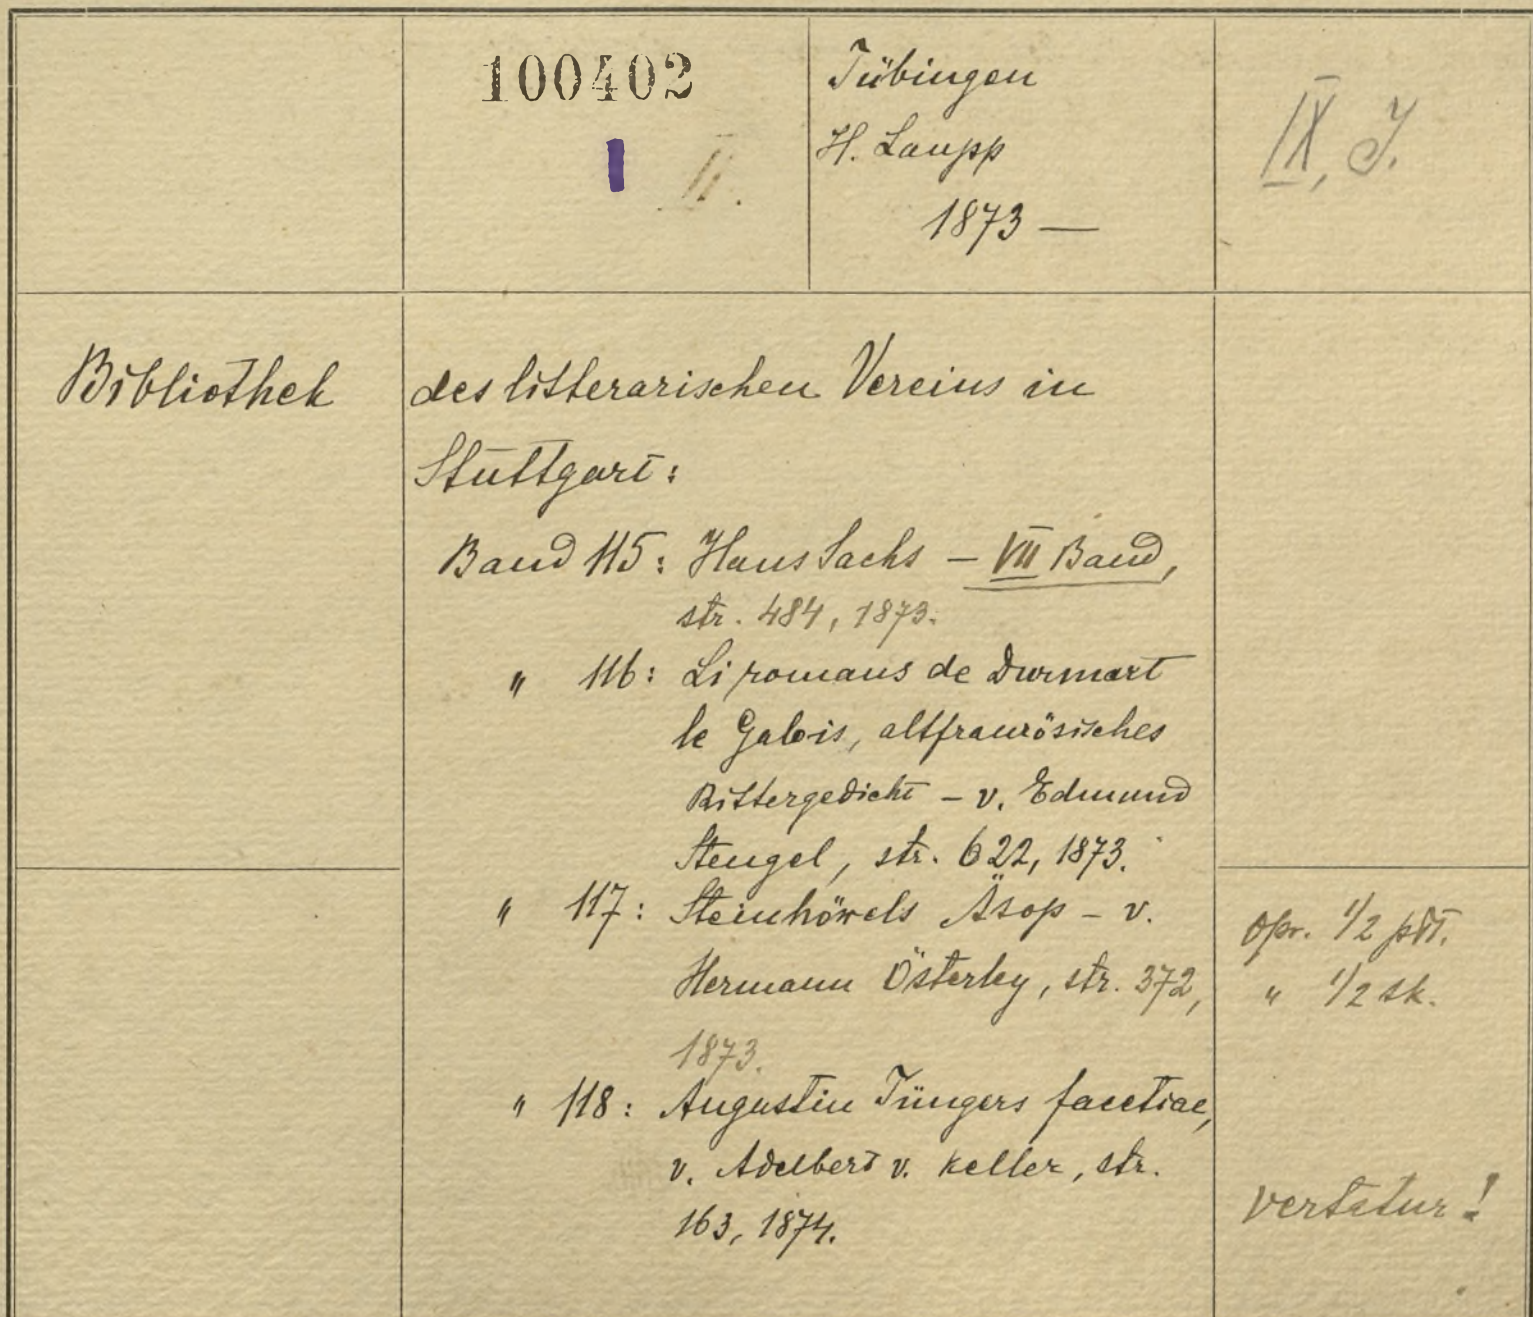 100402
I II.
Tübingen
H. Laupp
1873 —
IX, J.
Bibliothek
des litterarischen Vereins in
Stuttgart:
Band 115: Hans Sachs – VII Band,
str. 484, 1873.
" 116: Li romans de Durmart
le Galois, altfranzösisches
Rittergedicht – v. Edmund
Stengel, str. 622, 1873.
" 117: Steinhöwels Äsop – v.
Hermann Österley, str. 372,
1873.
" 118: Augustin Tüngers facetiae,
v. Adelbert v. Keller, str.
163, 1874.
Opr. 1/2 płt.
" 1/2 sk.
vertatur!